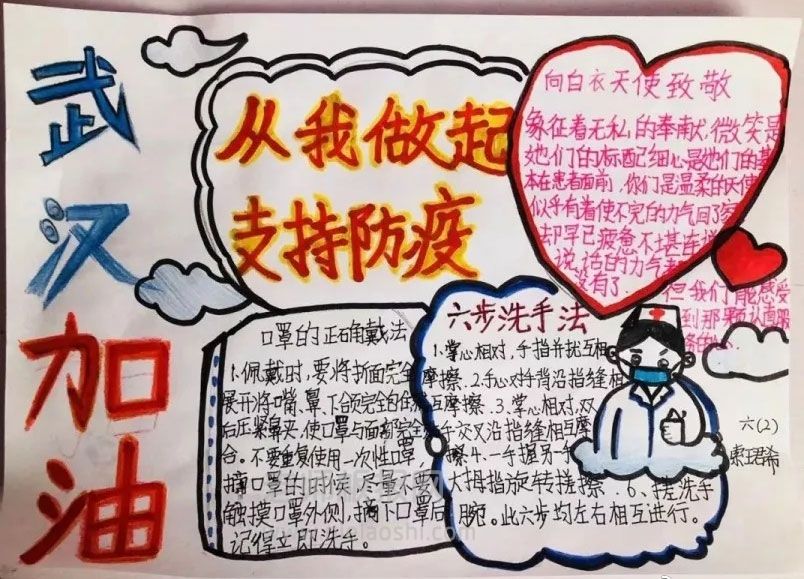 武
汉
加
油
从我做起
支持防疫
向白衣天使致敬
象征着无私的奉献,微笑是
她们的标配细心是她们的基
本在患者面前,你们是温柔的天使
似乎有着使不完的力气回了家
却早已疲惫不堪连说
说话的力气都
没有了
但我们能感受
到那颗
口罩的正确戴法
1.佩戴时,要将折面完全
展开将嘴、鼻、下颌完全的包
后压紧鼻夹,使口罩与面部完全
合。不要重复使用一次性口罩
摘口罩的时候,尽量不要
触摸口罩外侧,摘下口罩后
记得立即洗手。
六步洗手法
1.掌心相对,手指并拢互相
摩擦.2.手心对手背沿指缝相
互摩擦.3.掌心相对,双
手交叉沿指缝相互摩
擦4.一手握另一
大拇指旋转搓擦.6、搓洗手
腕。此六步均左右相互进行。
六(2)